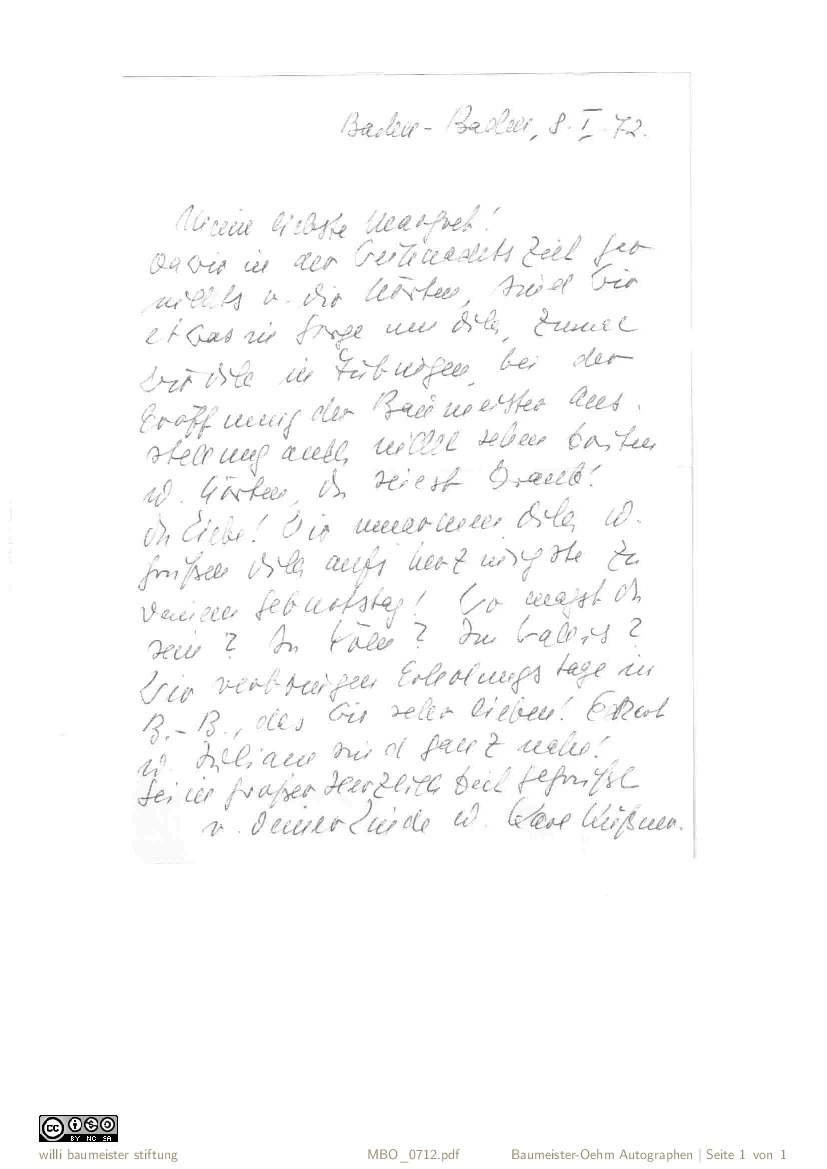 Baden-Baden, 8.I.72.
Meine liebste Margret!
Da wir in der Weihnachtszeit gar
nichts v. dir hörten, sind wir
etwas in Sorge um dich, zumal
wir dich in Tübingen, bei der
Eröffnung der Baumeister Aus-
stellung auch nicht sehen konnten
u. hörten, du seiest krank!
du Liebe! Wir umarmen dich u.
grüßen dich aufs herzinnigste zu
deinem Geburtstag! Wo magst du
sein? In Köln? Im Wallis?
Wir verbringen Erholungstage in
B.-B., das wir sehr lieben! Eckart
u. Juliane sind ganz nahe!
Sei in großer Herzlichkeit gegrüßt
v. deiner Linde u. Karl
willi baumeister stiftung
MBO_0712.pdf
Baumeister-Oehm Autographen | Seite 1 von 1
CC BY NC SA